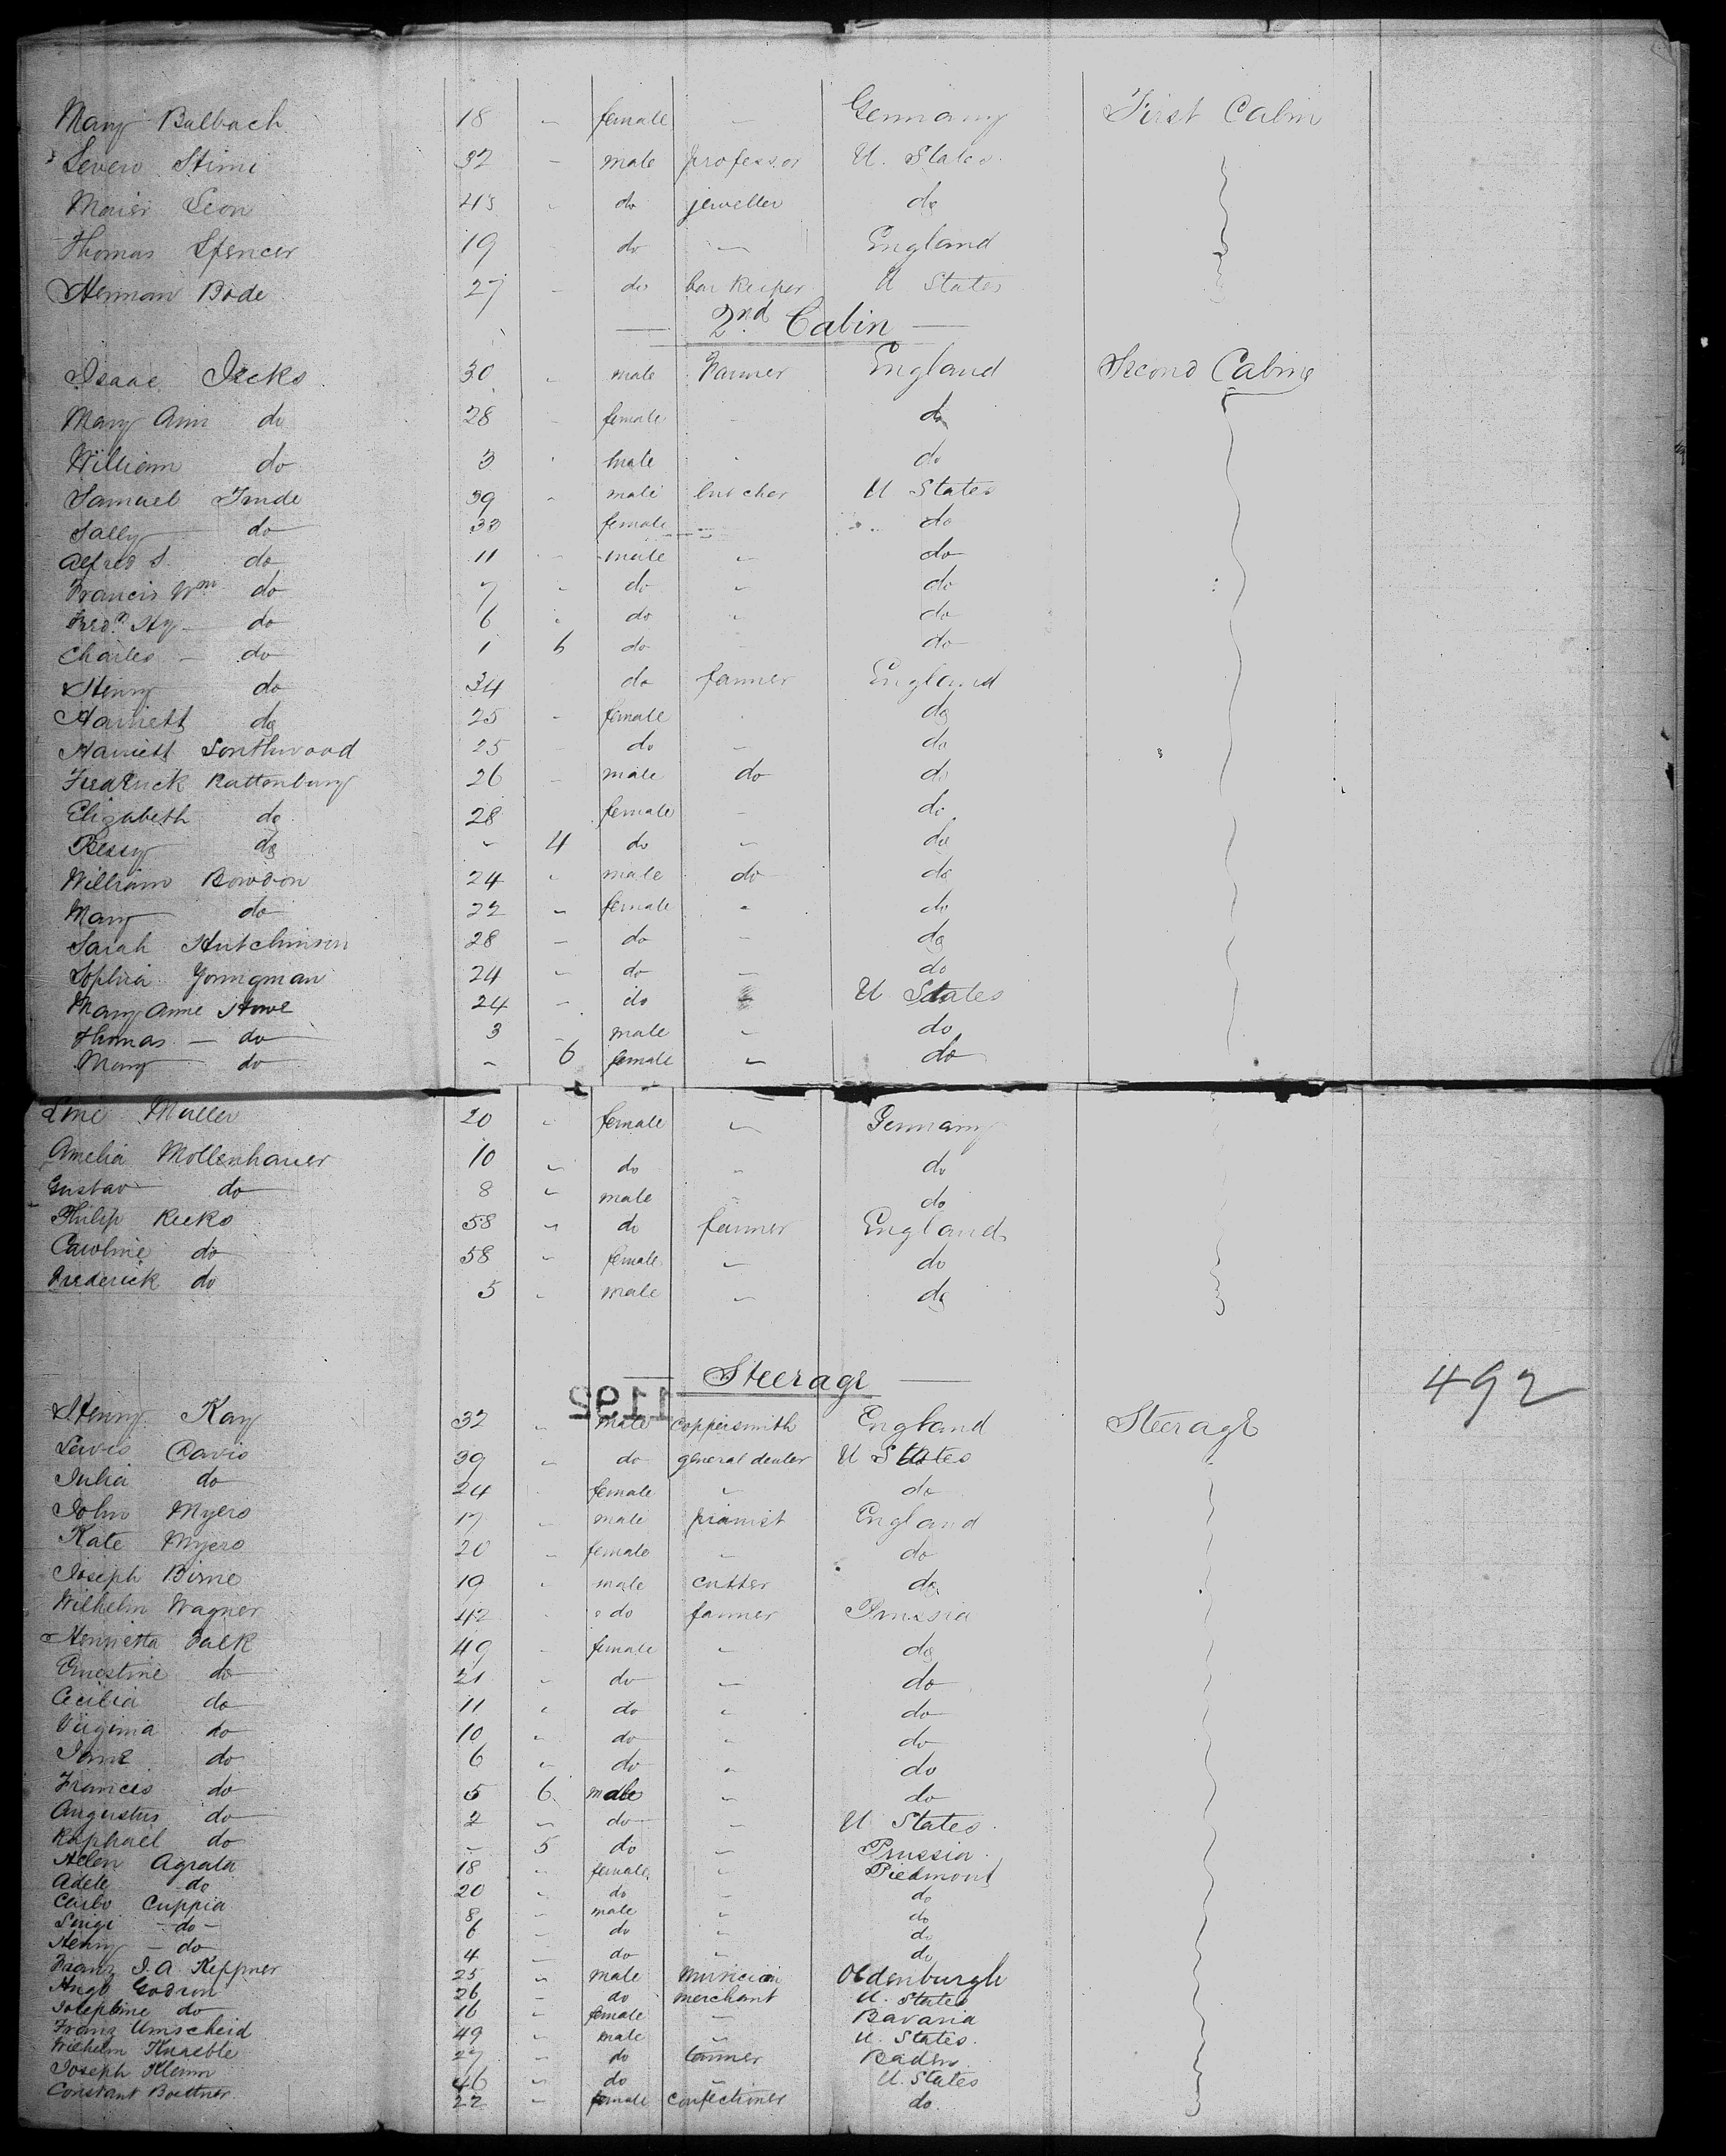 Mary Balbach 18 - female - Germany First Cabin
Severo Strini 32 - male professor U. States
Maier Leon 43 - do jeweller do
Thomas Spencer 19 do - England
Herman Bode 27 - do bar keeper U States
2nd Cabin
Isaac Jecks 30 - male Farmer England Second Cabin
Mary Ann do 28 - female - do
William do 3 - male - do
Samuel Trude 39 - male butcher U States
Sally do 33 female - do
Alfred S. do 11 - male - do
Francis Wm do 7 - do - do
Fredk Hy do 6 - do - do
Charles - do 1 6 do do
Henry do 34 do farmer England
Harriett do 25 - female - do
Harriett Southwood 25 do - do
Fredrick Rattenbury 26 - male do do
Elizabeth do 28 female - do
Bessy do - 4 do - do
William Bowdon 24 - male do do
Mary do 22 - female - do
Sarah Hutchinson 28 - do - do
Sophia Youngman 24 - do - do
Mary Anne Howe 24 - do - U States
Thomas - do 3 - male - do
Mary do - 6 female - do
Line Muller 20 - female - Germany
Amelia Mollenhauer 10 - do - do
Gustav do 8 - male - do
Philip Reeks 58 - do farmer England
Caroline do 58 - female - do
Frederick do 5 - male - do
Steerage
492
1192
Henry Kay 32 - male coppersmith England Steerage
Lewis Davis 39 - do general dealer U States
Julia do 24 female - do
John Myers 17 - male pianist England
Kate Myers 20 - female - do
Joseph Birne 19 - male cutter do
Wilhelm Wagner 42 - do farmer Prussia
Henrietta Falk 49 - female - do
Ernestine do 21 - do - do
Cecilia do 11 - do - do
Virginia do 10 - do - do
Jane do 6 - do - do
Frances do 5 6 male - do
Augustus do 2 - do - U States
Raphael do - 5 do - Prussia
Helen Agrata 18 - female - Piedmont
Adele do 20 - do - do
Carlo Cuppia 8 - male - do
Luigi - do - 6 - do - do
Henry - do 4 - do - do
Franz J. A. Keppner 25 - male musician Oldenburgh
Hugo Godron 26 - do merchant U. States
Josephine do 16 - female - Bavaria
Franz Umscheid 49 - male - U. States
Wilhelm Knaeble 27 - do tanner Baden
Joseph Klemm 46 - do - U. States
Constant Boettner 22 - female confectioner do